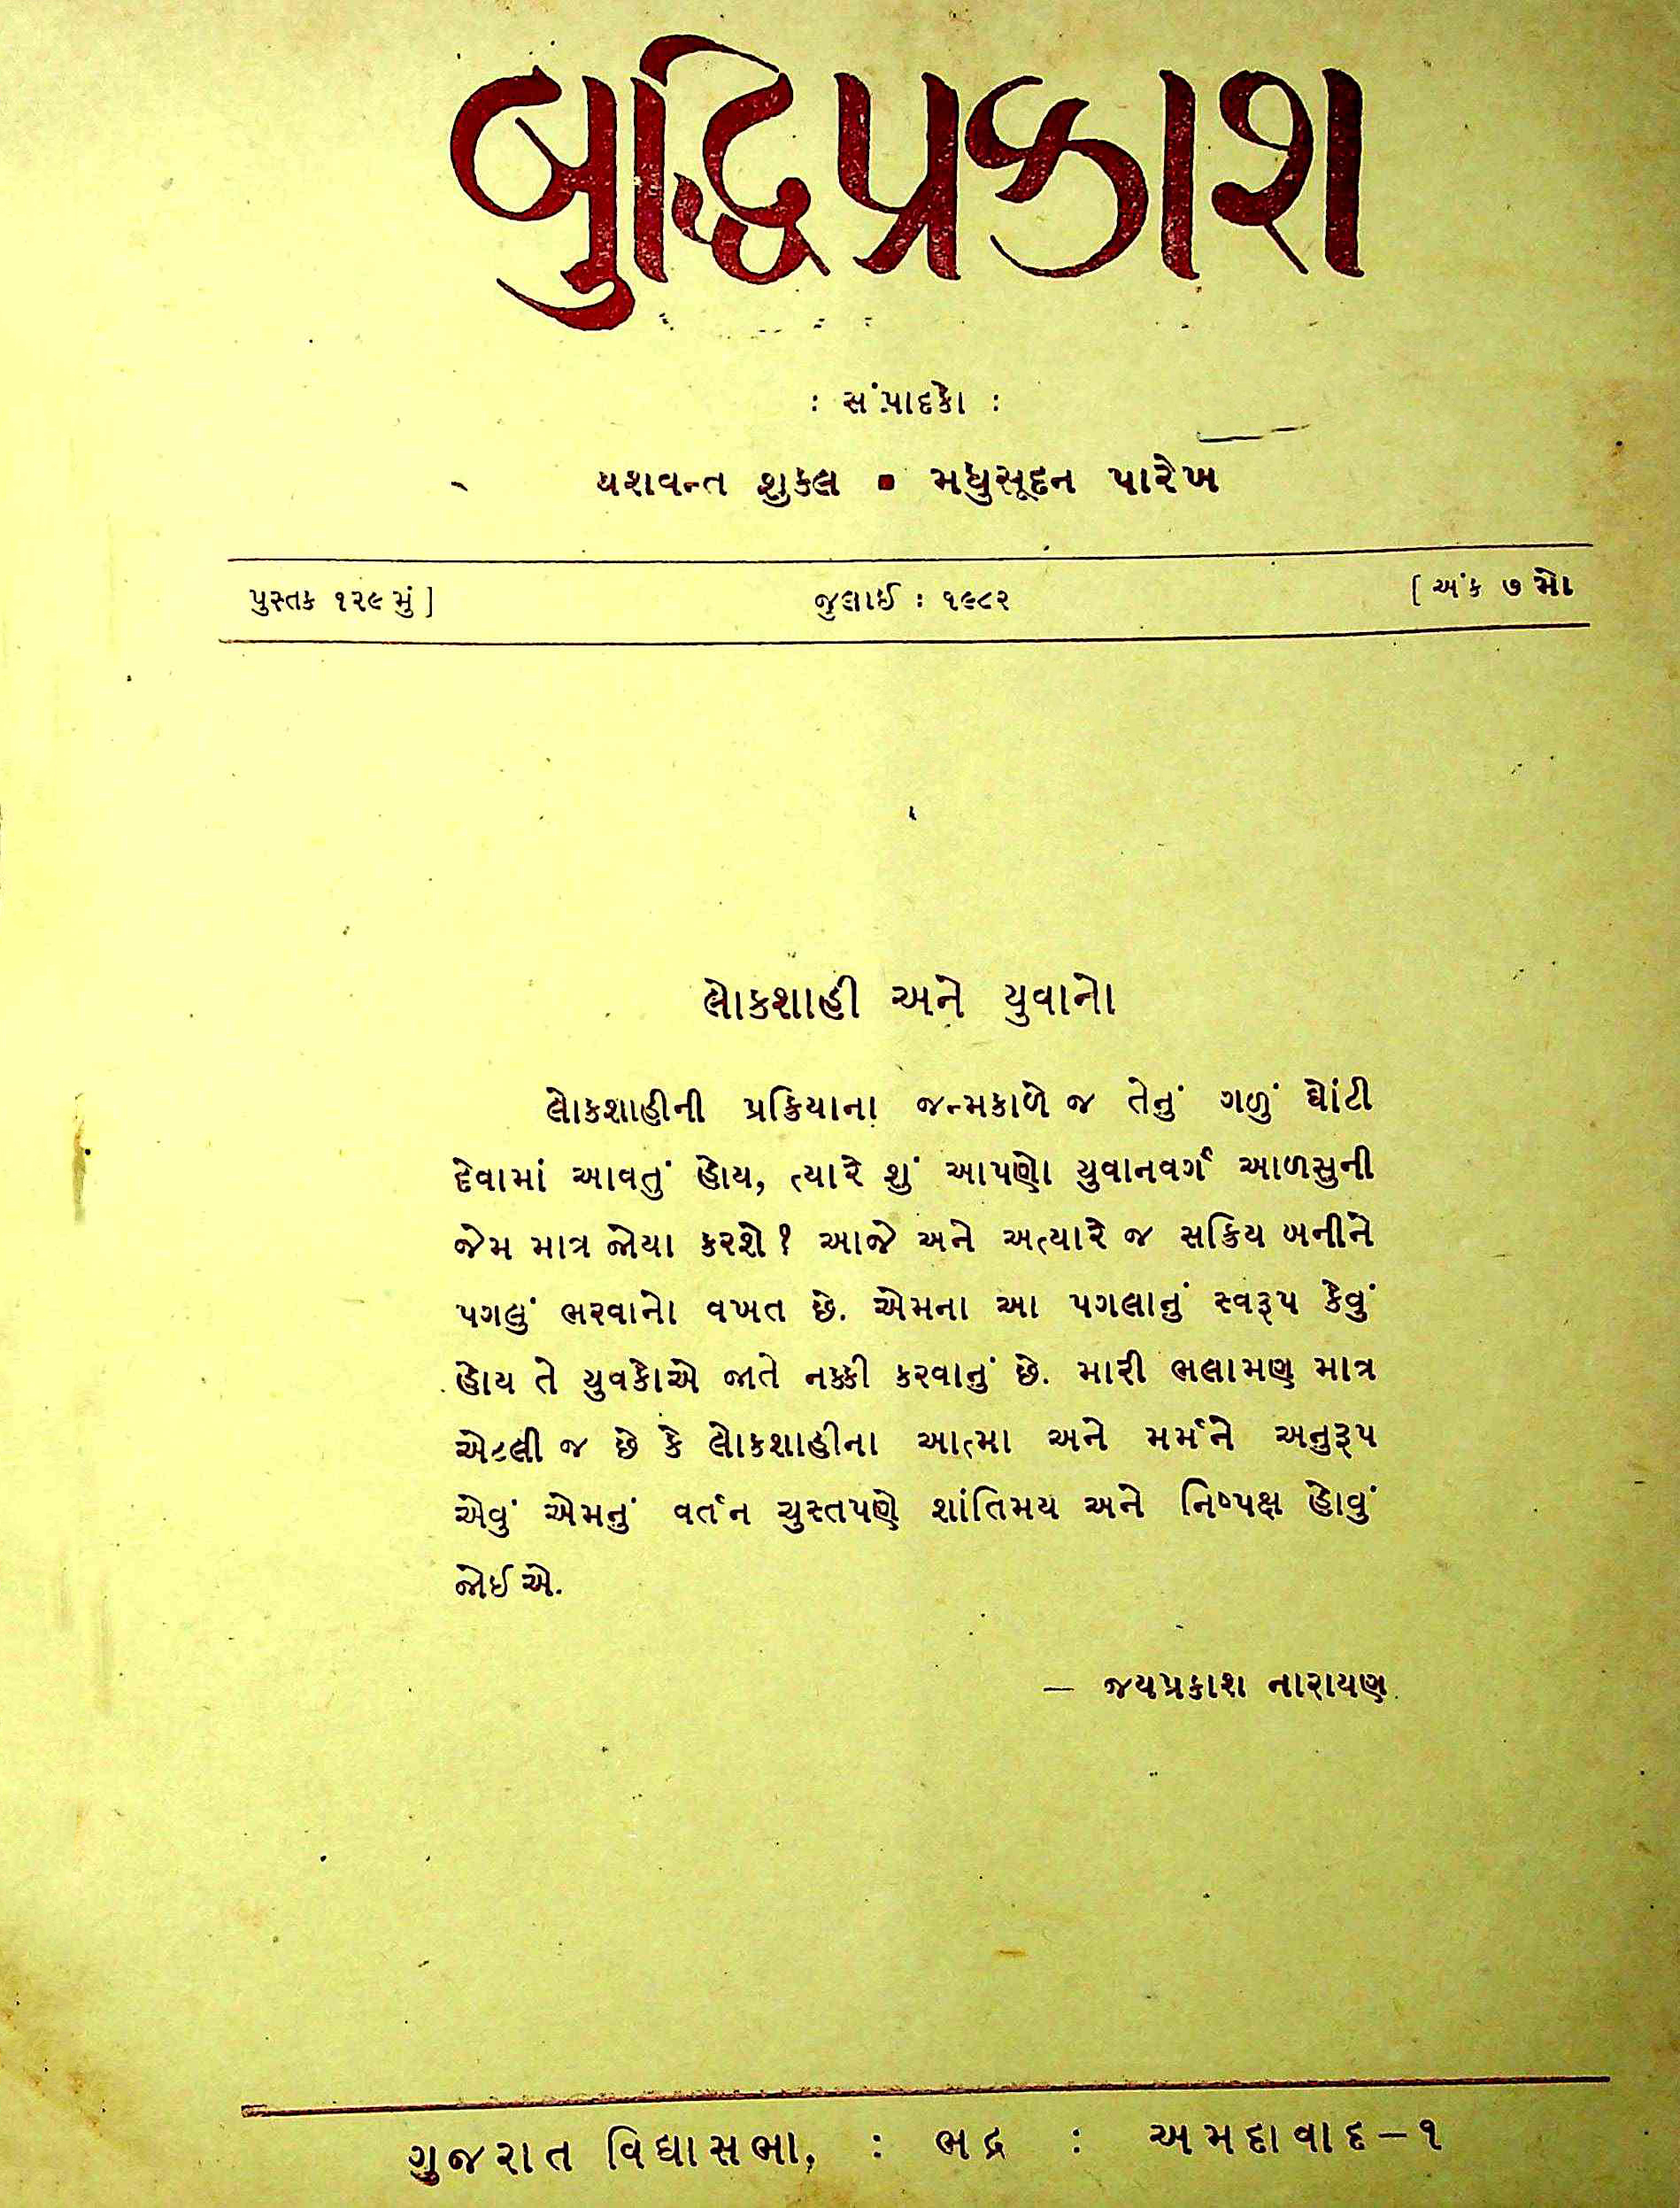 બુદ્ધિપ્રકાશ
: સંપાદકો :
યશવન્ત શુક્લ ▪ મધુસૂદન પારેખ
પુસ્તક ૧૨૯ મું ] જુલાઈ : ૧૯૮૨ [ અંક ૭ મો
લોકશાહી અને યુવાનો
લોકશાહીની પ્રક્રિયાના જન્મકાળે જ તેનું ગળું ઘોંટી
દેવામાં આવતું હોય, ત્યારે શું આપણો યુવાનવર્ગ આળસુની
જેમ માત્ર જોયા કરશે? આજે અને અત્યારે જ સક્રિય બનીને
પગલું ભરવાનો વખત છે. એમના આ પગલાનું સ્વરૂપ કેવું
હોય તે યુવકોએ જાતે નક્કી કરવાનું છે. મારી ભલામણ માત્ર
એટલી જ છે કે લોકશાહીના આત્મા અને મર્મને અનુરૂપ
એવું એમનું વર્તન ચુસ્તપણે શાંતિમય અને નિષ્પક્ષ હોવું
જોઈએ.
— જયપ્રકાશ નારાયણ
ગુજરાત વિદ્યાસભા, : ભદ્ર : અમદાવાદ–૧